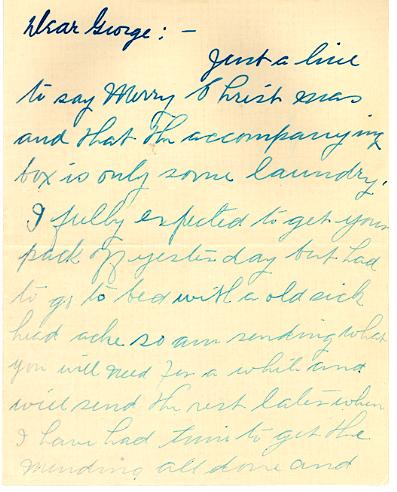 Dear George: -
Just a line
to say Merry Christmas
and that the accompanying
box is only some laundry.
I fully expected to get your
pack off yesterday but had
to go to bed with a old sick
head ache so am sending what
you will need for a while and
will send the rest later when
I have had time to get the
mending all done and